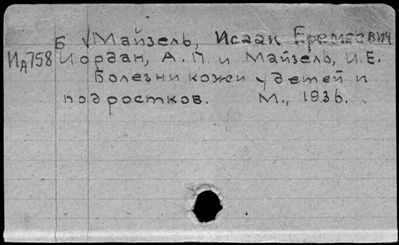 Б √ Майзель, Исаак Еремеевич
ИД758 Иордан, А.П. и Майзель, И.Е.
Болезни кожи у детей и
подростков. М., 1936.